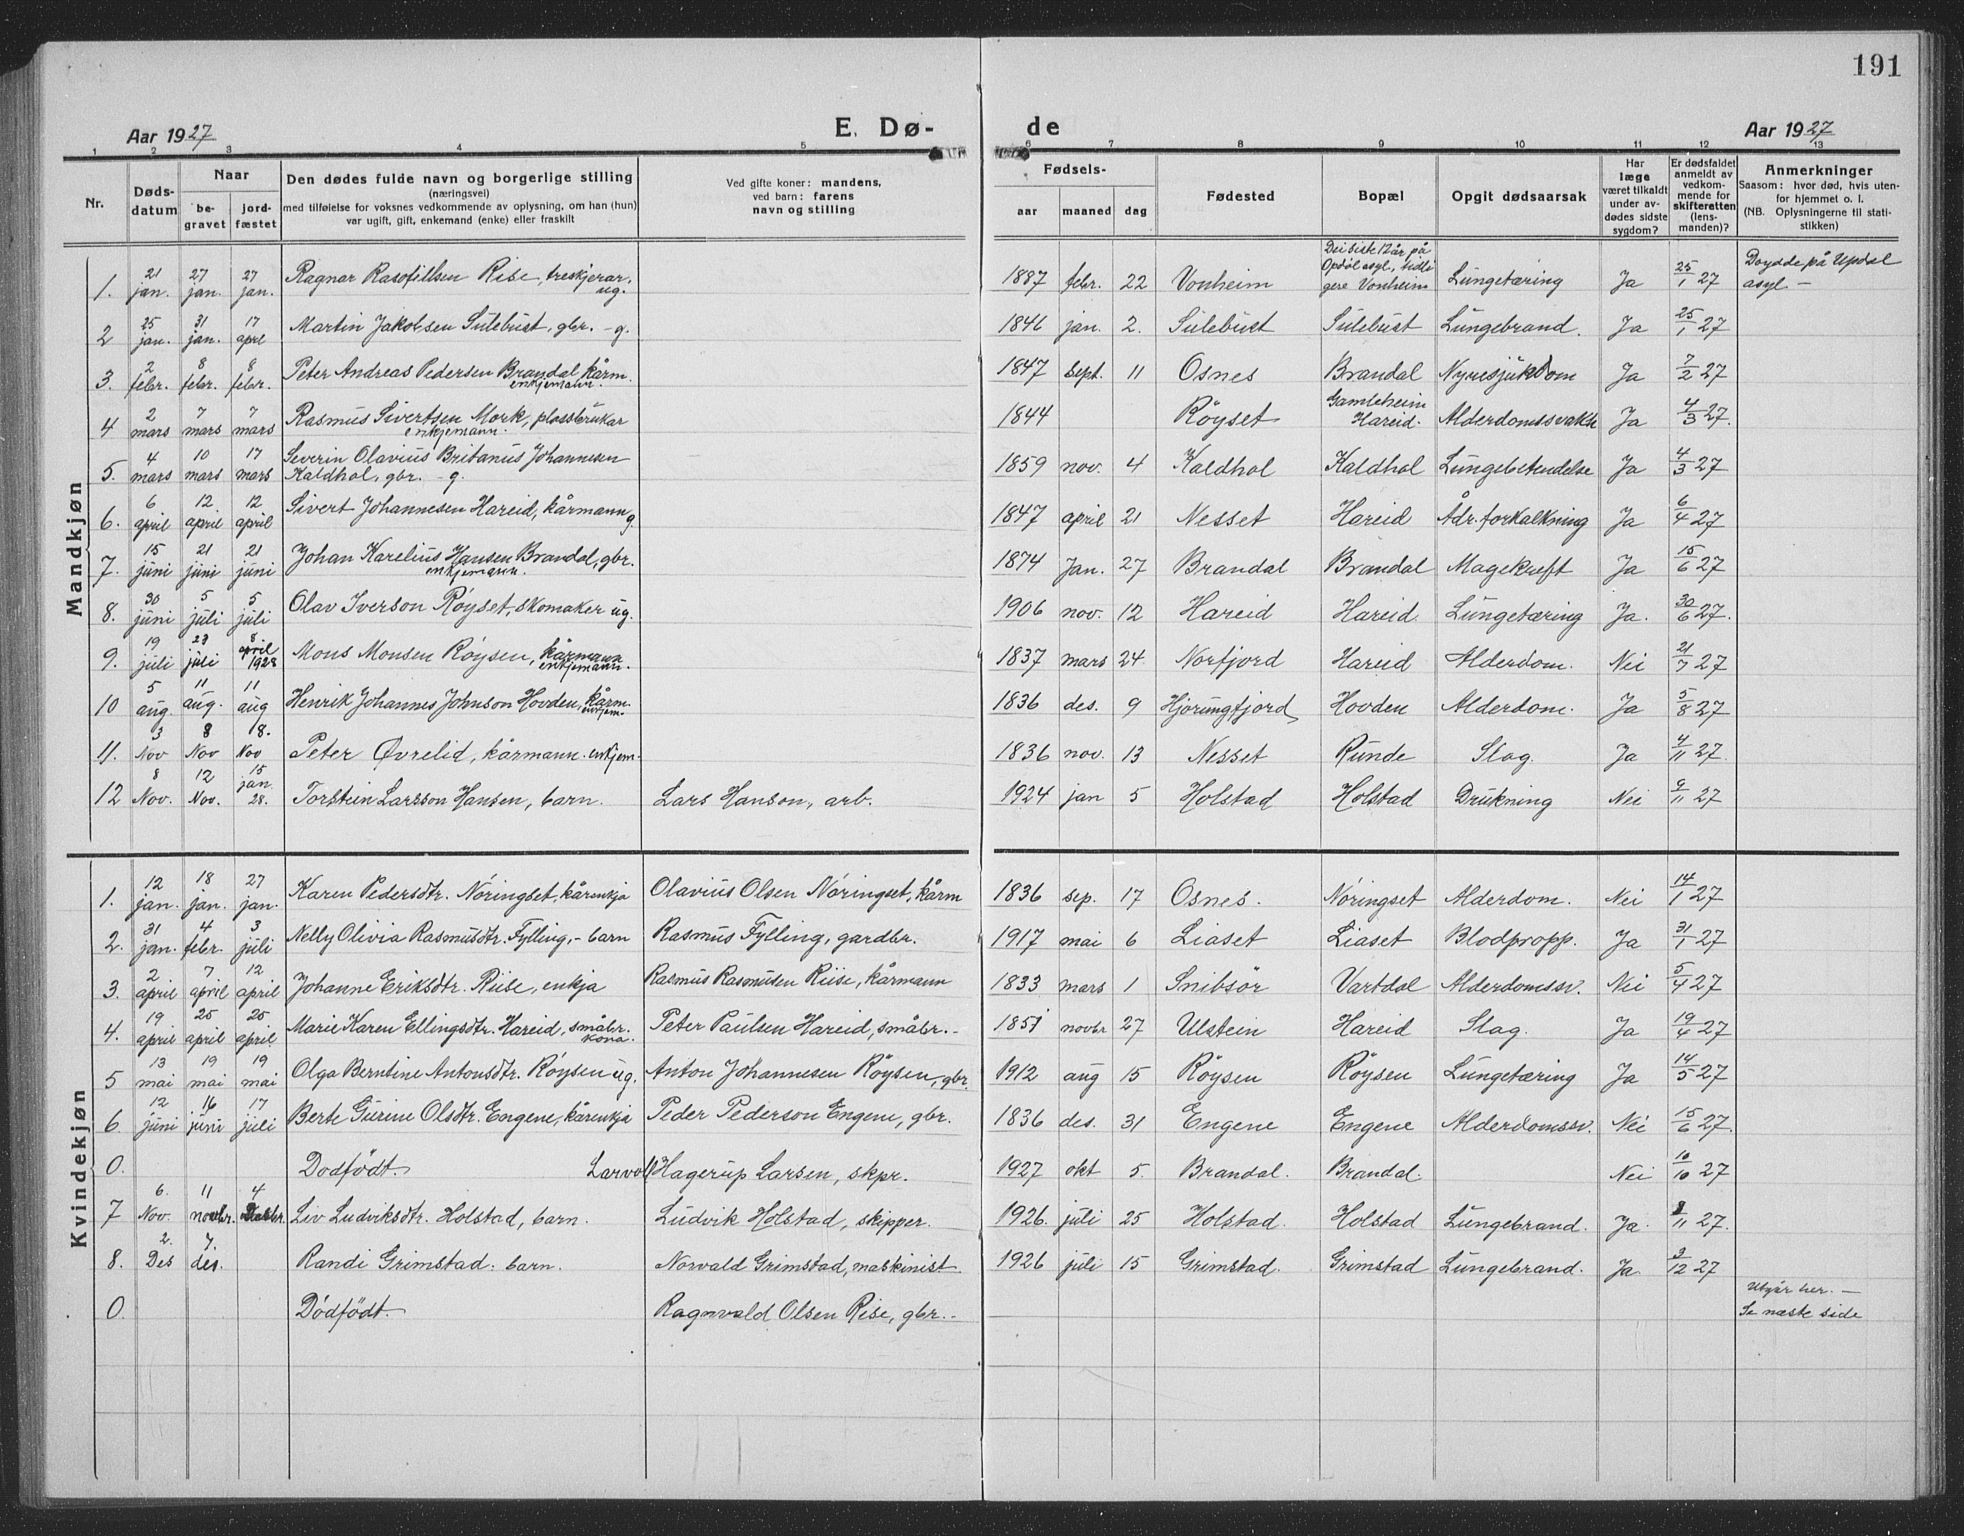 191
Aar 1927 E. Dø- de Aar 1927
1 2 3 4 5 6 7 8 9 10 11 12 13
Nr. Døds-datum Naar be-gravet jord-fæstet Den dødes fulde navn og borgerlige stilling (næringsvei) med tilføielse for voksnes vedkommende av oplysning, om han (hun) var ugift, gift, enkemand (enke) eller fraskilt Ved gifte koner: mandens, ved barn: farens navn og stilling Fødsels- aar maaned dag Fødested Bopæl Opgit dødsaarsak Har læge været tilkaldt under av-dødes sidste sygdom? Er dødsfaldet anmeldt av vedkom-mende for skifteretten (lens-manden)? Anmerkninger Saasom: hvor død, hvis uten-for hjemmet o. l. (NB. Oplysningerne til stati-stikken)
Mandkjøn
1. 21 jan. 27 jan. 27 jan. Ragnar Rise, treskjerar. ug. 1887 febr. 22 Vonheim Dei siste 12 år på Opdøl asyl, tidli gere Vonheim Lungetæring Ja 25/1 27 Døydde på Updal asyl. -
2 25 jan. 31 jan. 17 apr Martin Jakobsen Sulebust, gbr. - g. 1846 jan. 2. Sulebust Sulebust Lungebrand. Ja 25/1 27
3. 2 febr. 8 febr. 8 febr. Peter Andreas Pedersen Brandal kårm. enkjemann. 1847 Sept. 11 Osnes Brandal Nyresjukdom Ja 7/2 27
4 2 mars 7 mars 7 mars Rasmus Sivertsen Mork, plassbrukar enkjemann. 1844 Röyset Gamleheim Hareid. Alderdomssvakh Ja 4/3 27.
5. 4 mars 10 mars 17 mars Severin Olavius Britanus Johannesen Kaldhol, gbr. - g. 1859 nov. 4 Kaldhol Kaldhol Lungebetendelse Ja 4/3 27
6. 6 april 12. april 12 april Sivert Johannesen Hareid, kårmann g. 1847 april 21 Nesset Hareid Ådr.forkalkning Ja 6/4 27
7. 15 juni 21 juni 21 juni Johan Karelius Hansen Brandal, gbr. enkjemann. 1874 Jan. 27 Brandal Brandal Magekreft Ja 15/6 27
8. 30 juni 5 juli 5 juli Olav Iverson Röyset, skomaker ug. 1906 nov. 12 Hareid Hareid Lungetæring Ja. 30/6 27.
9. 19 juli 23 juli 8 april 1928 Mons Monsen Röysen, kårmann enkjemann. 1837 mars 24 Norfjord Hareid Alderdom. Nei 21/7 27
10 5 aug. 11 aug. 11 aug Henrik Johannes Johnson Hovden, kårm. enkjem. 1836 des. 9 Hjörungfjord Hovden Alderdom. Ja 5/8 27
11. 3 Nov 8 Nov 18. Nov Peter Øvrelid, kårmann. enkjem. 1836 nov. 13 Nesset Runde Slag. Ja 4/11 27.
12 8 Nov. 12 Nov. 15 jan 28. Torstein Larsson Hansen, barn. Lars Hanson, arb. 1924 jan 5 Holstad Holstad Drukning Nei 9/11 27
Kvindekjøn
1. 12 jan. 18 jan. 27 jan. Karen Pedersdtr. Nöringset, kårenkja Olavius Olsen Nöringset, kårm 1836 sep. 17 Osnes. Nöringset Alderdom. Nei 14/1 27
2. 31 jan. 4 febr. 3 juli Nelly Olivia Rasmusdtr. Fylling, - barn Rasmus Fylling, gardbr. 1917 mai 6 Liaset Liaset Blodpropp. Ja 31/1 27
3. 2 april 7 april 12 april Johanne Eriksdtr. Riise, enkja Rasmus Rasmusen Riise, kårmann 1833 mars 1 Snibsör Vartdal Alderdomssv. Nei 5/4 27
4. 19 april 25 april 25 april Marie Karen Ellingsdtr. Hareid, småbr. kona. Peter Paulsen Hareid, småbr. - 1851 novbr 27 Ulstein Hareid Slag. Ja 19/4 27
5 13 mai 19 mai 19 mai Olga Berntine Antonsdtr. Röysen ug. Anton Johannesen Röysen, gbr. 1912 aug 15 Röysen Röysen Lungetæring Ja 14/5 27
6. 12 juni 16 juni 17 juli Berte Gurine Olsdtr. Engene, kårenkja Peder Pederson Engene, gbr. 1836 des. 31 Engene Engene Alderdomssv. Nei 15/6 27.
0. Dodfödt. Larvoll Hagerup Larsen, skpr. 1927 okt 5. Brandal. Brandal. Nei 10/10 27
7 6. Nov. 11 novbr. 4 Liv Ludviksdtr. Holstad, barn. Ludvik Holstad, skipper. 1926. juli 25 Holstad. Holstad Lungebrand. Ja. 8/11 27.
8. 2. Des 7 des. Randi Grimstad. barn. Norvald Grimstad, maskinist 1926 juli 15 Grimstad. Grimstad Lungebrand. Ja. 3/12 27
0. Dödfödt. Ragnvald Olsen Rise, gbr. - Utgår her. - Se næste side